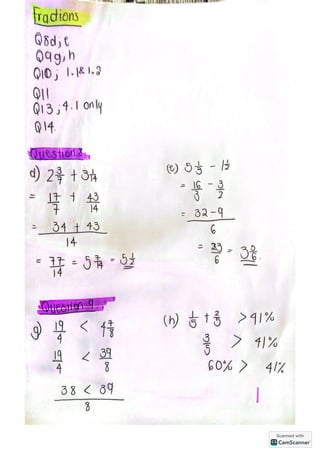 Fractions
Q8d, e
Q9g, h
Q10; 1.1&1.2
Q11
Q13; 4.1 only
Q14.
Question 8
d) 2 3/7 + 3 1/14
= 17/7 + 43/14
= 34 + 43 / 14
= 77/14 = 5 7/14 = 5 1/2
(e) 5 1/3 - 1 1/2
= 16/3 - 3/2
= 32-9 / 6
= 23/6 = 3 5/6.
Question 9
g) 19/4 < 4 7/8
19/4 < 39/8
38 < 39 / 8
(h) 1/5 + 2/5 > 41%
3/5 > 41%
60% > 41%
1
Scanned with
CS CamScanner